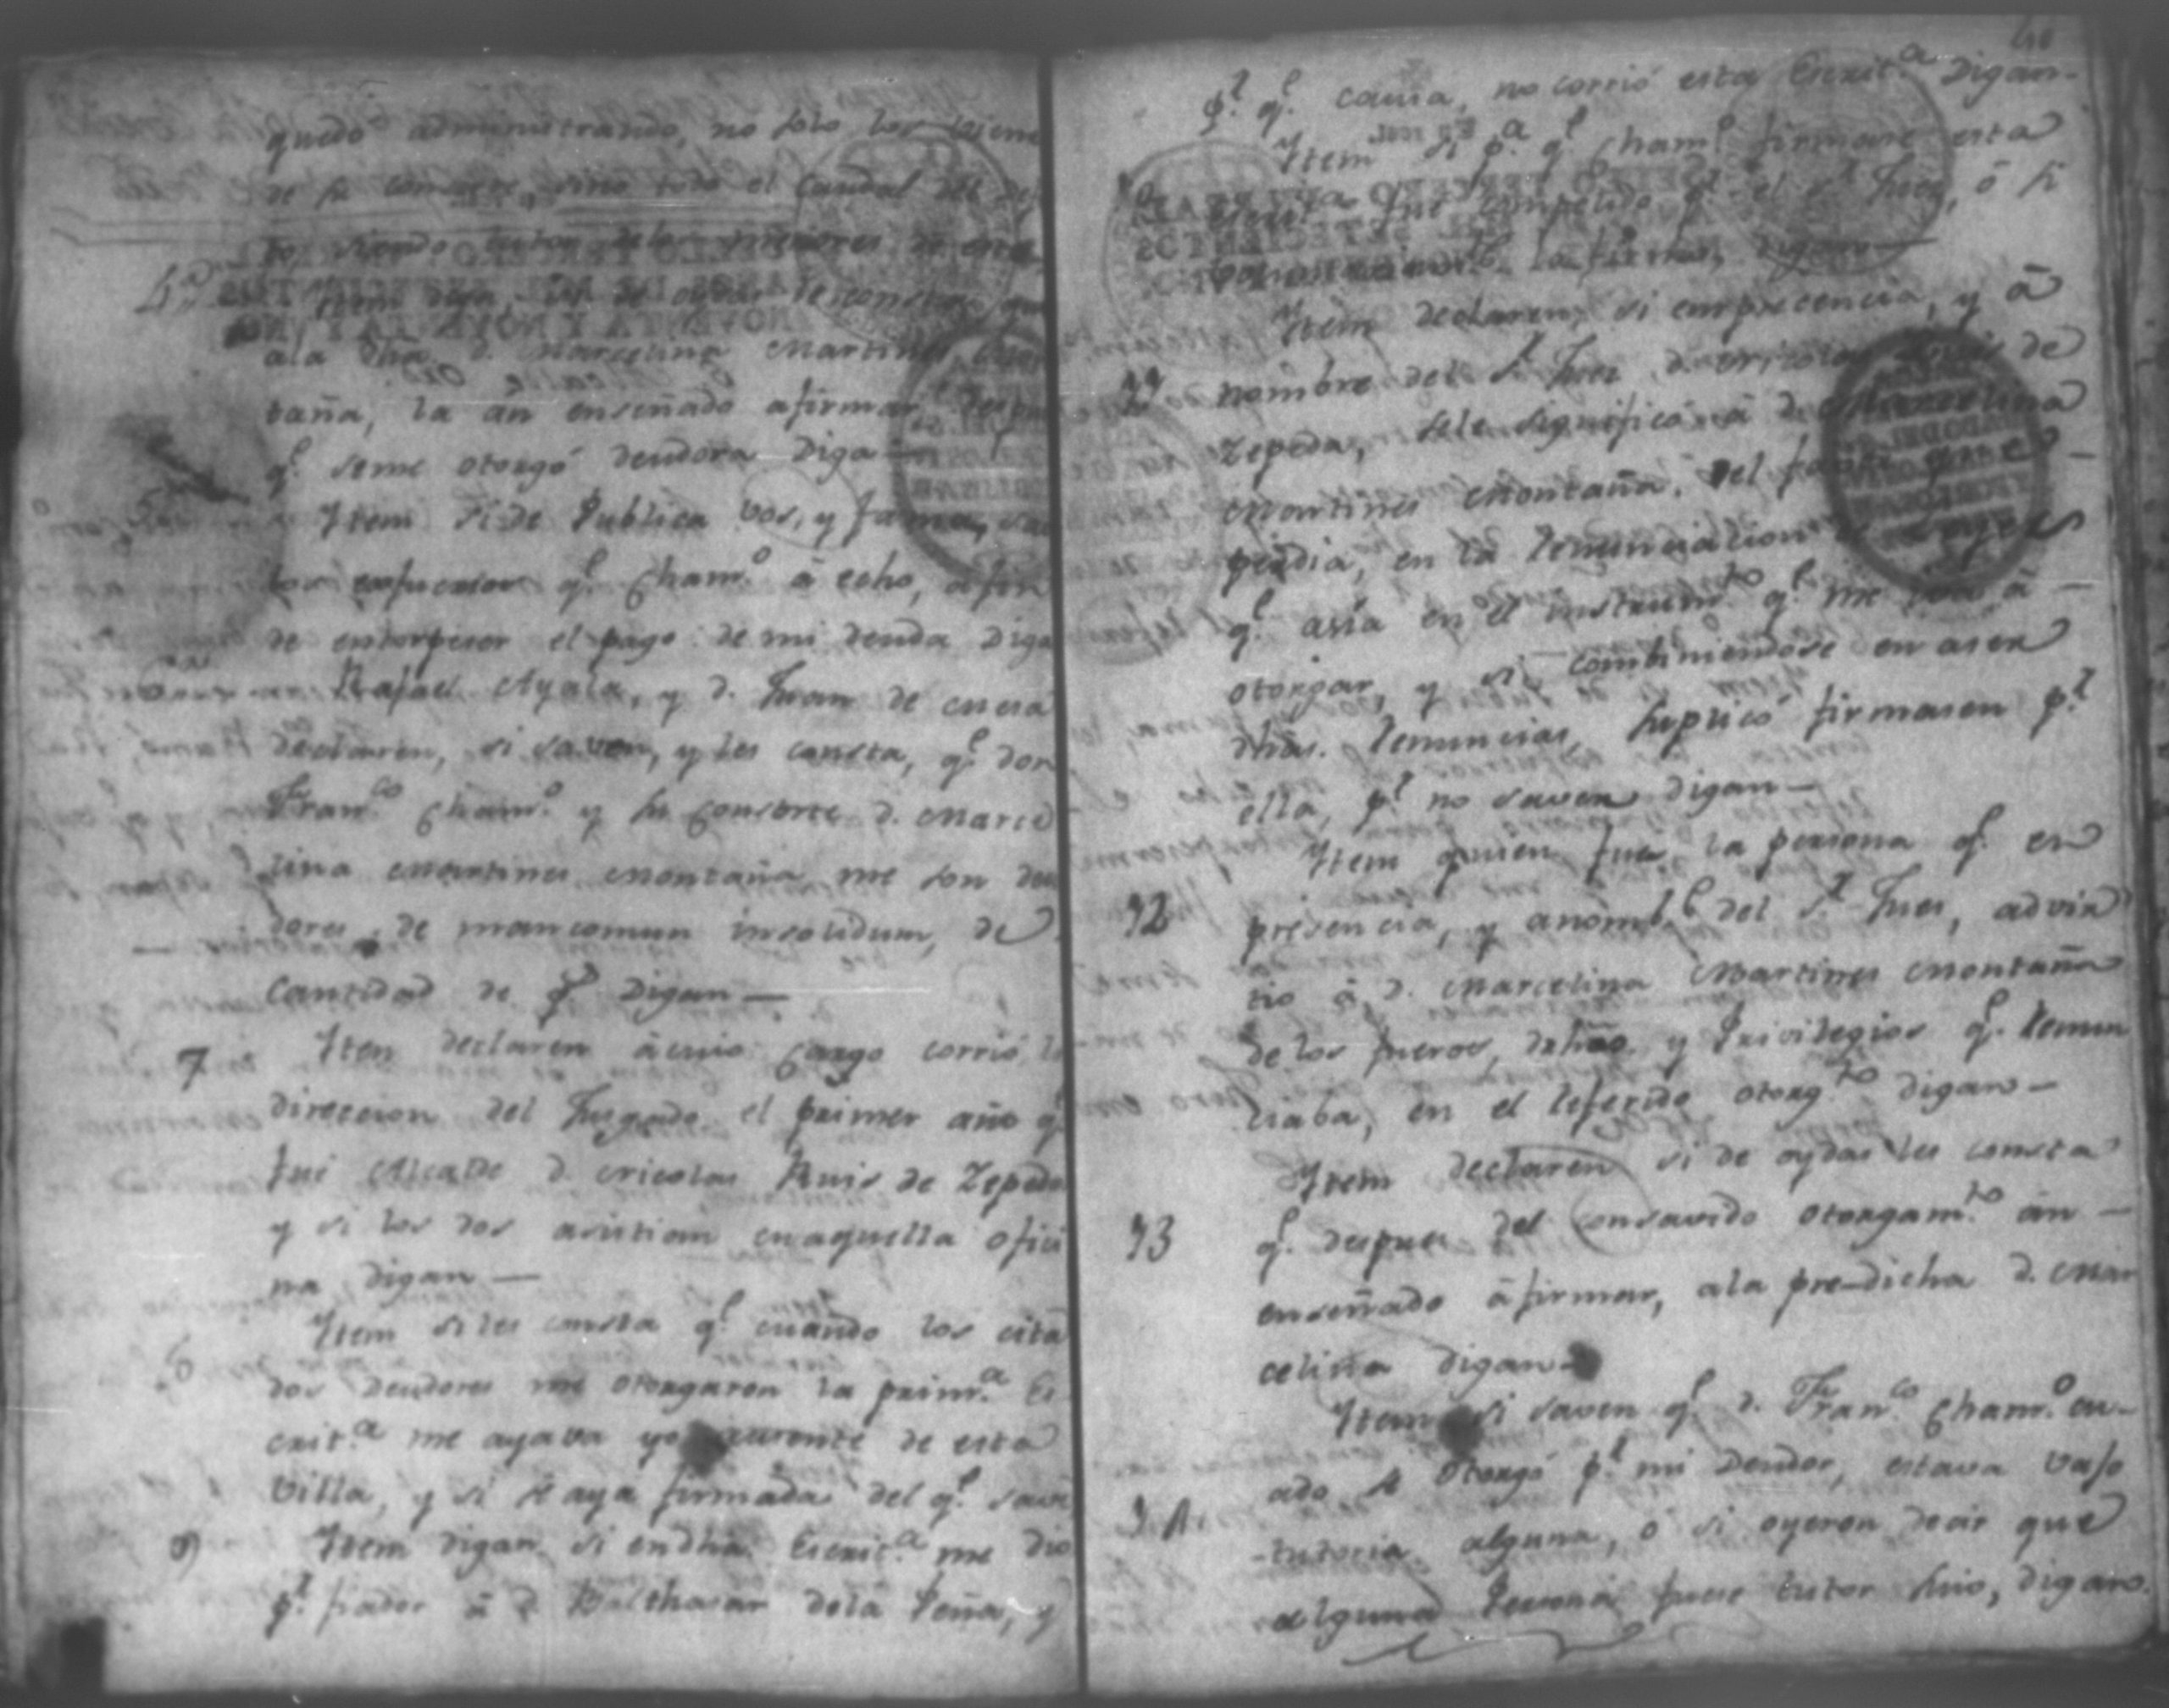 quedó administrando, no solo los viene
de su consorte, sino todo el Caudal del
siendo tutor de los menores
4ª Item diga, si de oydas le consta, que
ala dha d. Marcelina Martines
taña, la án enseñado afirmar, despu
q.e seme otorgó deudora Diga—
5ª Item si de Publica vos, y fama, save
los esfuersos q.e Cham.o â echo, afin
de entorpeser el pago de mi deuda Diga
6ª Rafael Ayala, y d. Juan de
declaren, si saven, y les consta, q.e don
Fran.co Cham.o y su Consorte d. Marce
lina Martines Montaña me son deu
dores, de mancomun insolidum, de
Cantidad de p.s Digan—
7 Iten declaren âcuio Cargo corrió l
direccion del Jusgado el primer año q.e
fui Alcalde d. Nicolas Ruis de Zepeda
y si los dos asistiam enaquella ofici
na digan—
8 Item siles consta q.e cuando los cita
dos deudores me otorgaron la prim.a Es
crit.a me ayava yo aucente de esta
Villa, y si se aya firmada del q.e save
9 Item digan si endha Escrit.a me dio
p.r fiador â d. Balthasar dela Peña, y
40
p.r q.e causa, no corrió esta Escrit.a Digan—
10 Item si p.a q.e Cham.o firmare esta
Escrit.a fue compelido p.r el S.r Jues, ó si
la firmó, digan—
Item declaren, si emprecencia, y â
11 nombre del S.r Jues d. Nicolas Ruis de
Zepeda, sele significó â d. Marcelina
Martines Montaña, del
perdia, en la renunciacion
q.e asia en el instrum.to q.e me â—
otorgar, y si combiniendose en aser
dhas. renuncias, suplicó firmasen p.r
ella, p.r no saver digan—
Item quien fue la persona q.e en
12 presencia, y anomb.e del S.r Jues, advir
tio â d. Marcelina Martines Montaña
de los fueros, drhos. y Privilegios q.e renun
ciaba, en el referido otorg.to digan—
Item declaren si de oydas les consta
13 q.e despues del consavido otorgam.to án—
enseñado âfirmar, ala pre-dicha d. Mar
celina digan—
Item si saven q.e d. Fran.co Cham.o cu-
ado se otorgó p.r mi Deudor, estava vajo
14. -tutoria alguna, ó si oyeron decir que
alguna Persona fuese tutor suio, digan.